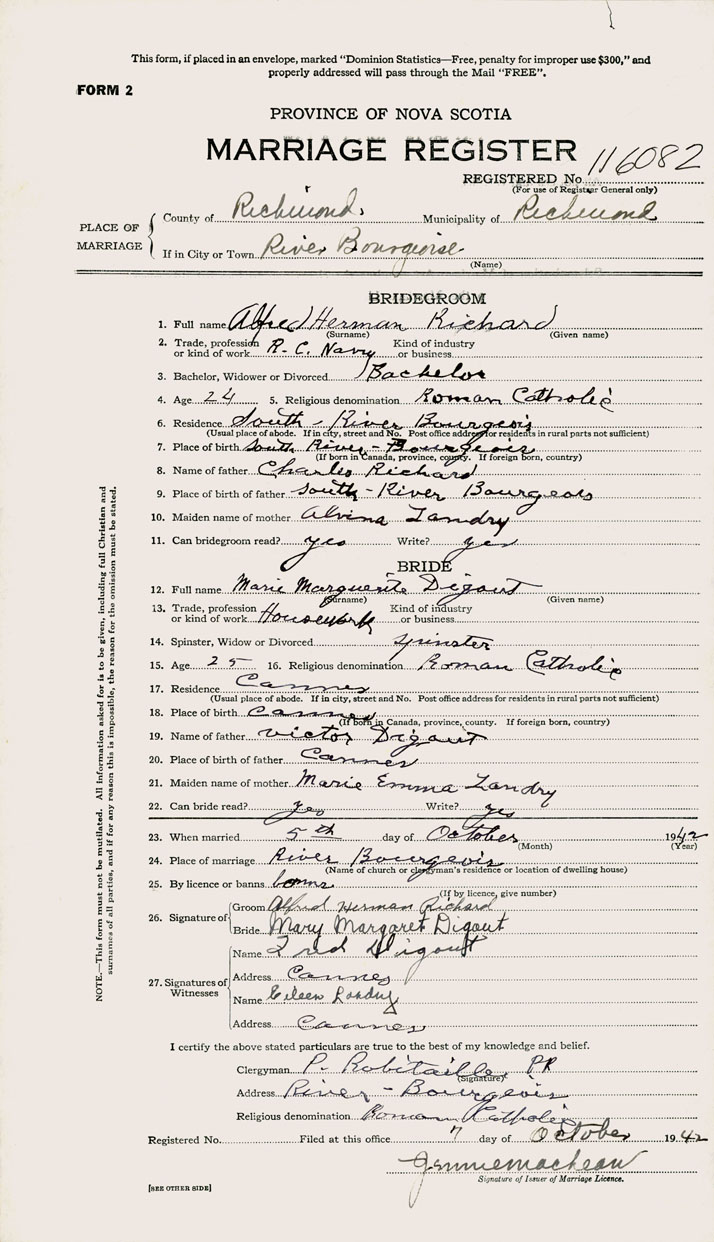 This form, if placed in an envelope, marked "Dominion Statistics—Free, penalty for improper use $300," and
properly addressed will pass through the Mail "FREE".
FORM 2
PROVINCE OF NOVA SCOTIA
MARRIAGE REGISTER
REGISTERED No. 116082
(For use of Registrar General only)
PLACE OF MARRIAGE
County of Richmond Municipality of Richmond
If in City or Town River Bourgeoise
(Name)
BRIDEGROOM
1. Full name Alfred Herman Richard
(Surname) (Given name)
2. Trade, profession or kind of work R-C. Navy Kind of industry or business
3. Bachelor, Widower or Divorced Bachelor
4. Age 24 5. Religious denomination Roman Catholic
6. Residence South-River Bourgeois
(Usual place of abode. If in city, street and No. Post office address for residents in rural parts not sufficient)
7. Place of birth South River-Bourgeois
(If born in Canada, province, county. If foreign born, country)
8. Name of father Charles Richard
9. Place of birth of father South-River Bourgeois
10. Maiden name of mother Alvina Landry
11. Can bridegroom read? yes Write? yes
BRIDE
12. Full name Marie Marguerite Digout
(Surname) (Given name)
13. Trade, profession or kind of work Housework Kind of industry or business
14. Spinster, Widow or Divorced Spinster
15. Age 25 16. Religious denomination Roman Catholic
17. Residence Cannes
(Usual place of abode. If in city, street and No. Post office address for residents in rural parts not sufficient)
18. Place of birth Cannes
(If born in Canada, province, county. If foreign born, country)
19. Name of father Victor Digout
20. Place of birth of father Cannes
21. Maiden name of mother Marie Emma Landry
22. Can bride read? yes Write? yes
23. When married 5th day of October 1942
(Month) (Year)
24. Place of marriage River Bourgeois
(Name of church or clergyman's residence or location of dwelling house)
25. By licence or banns
(If by licence, give number)
26. Signature of Groom Alfred Herman Richard
Bride Mary Margaret Digout
27. Signatures of Witnesses
Name Fred Digout
Address Cannes
Name Eileen Landry
Address Cannes
I certify the above stated particulars are true to the best of my knowledge and belief.
Clergyman P. Robitaille PP
(Signature)
Address River-Bourgeois
Religious denomination Roman Catholic
Registered No. Filed at this office 7 day of October 1942
Jennie
Signature of Issuer of Marriage Licence.
[SEE OTHER SIDE]
NOTE.—This form must not be mutilated. All information asked for is to be given, including full Christian and
surnames of all parties, and if for any reason this is impossible, the reason for the omission must be stated.